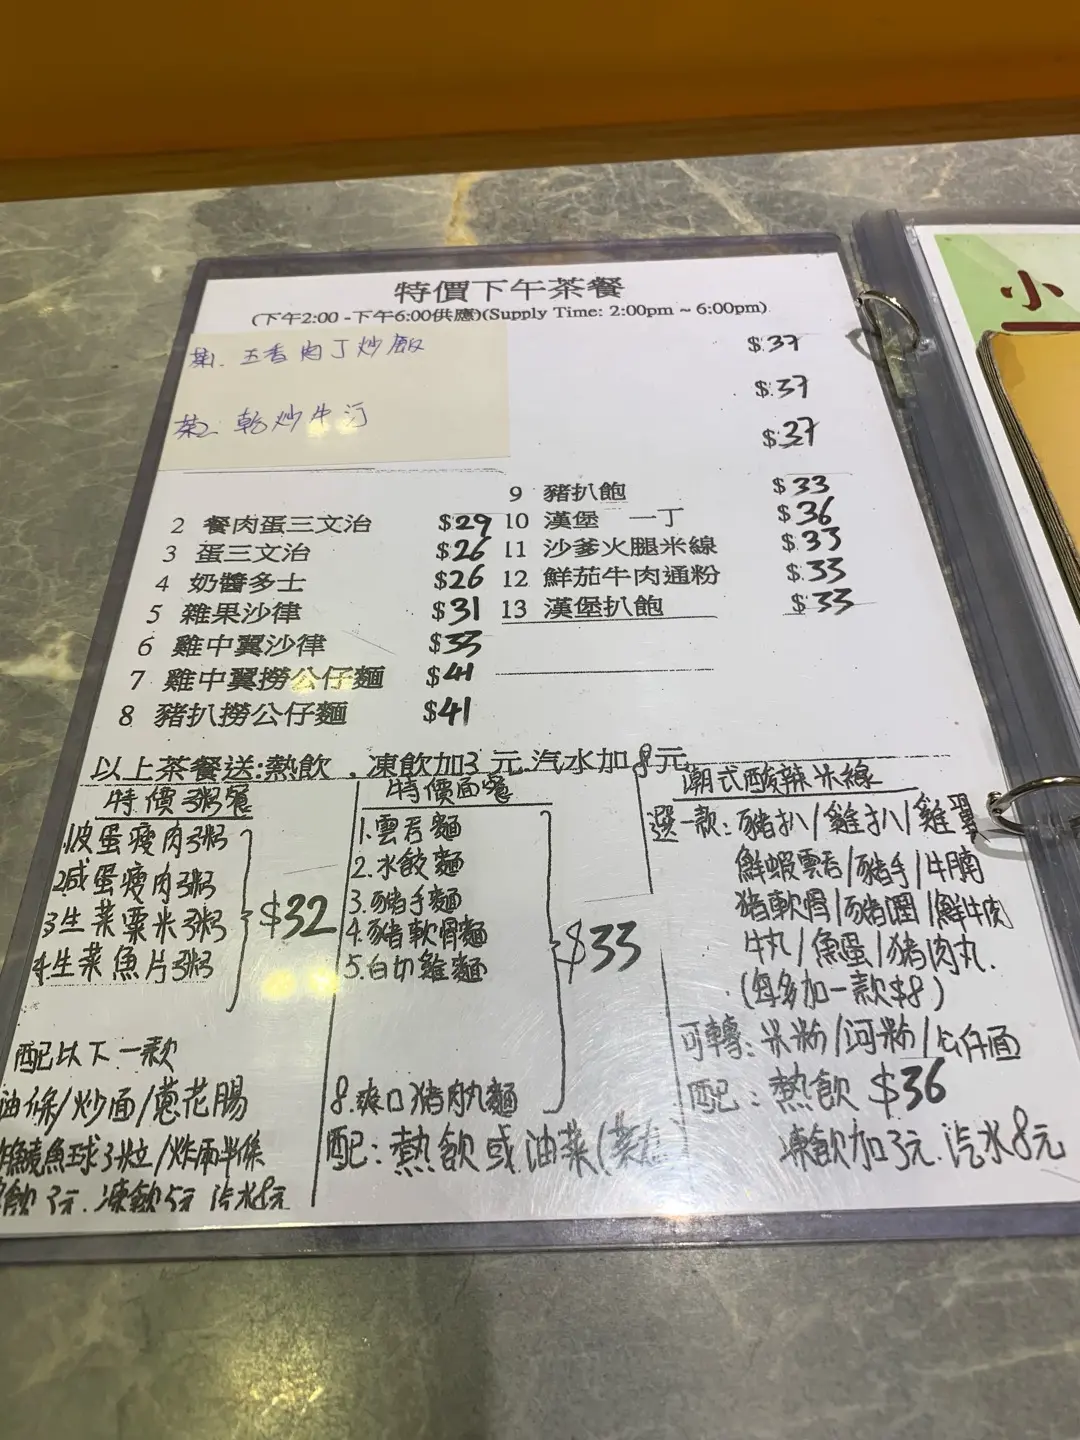 特價下午茶餐
(下午2:00 -下午6:00供應)(Supply Time: 2:00pm ~ 6:00pm)
五香肉丁炒飯
$:37
$:37
乾炒牛河
$:37
2 餐肉蛋三文治 $29
3 蛋三文治 $26
4 奶醬多士 $26
5 雜果沙律 $31
6 雞中翼沙律 $33
7 雞中翼撈公仔麵 $41
8 豬扒撈公仔麵 $41
9 豬扒飽 $33
10 漢堡 一丁 $36
11 沙爹火腿米線 $.33
12 鮮茄牛肉通粉 $.33
13 漢堡扒飽 $:33
以上茶餐送:熱飲 , 凍飲加3 元.汽水加8元
特價粥餐
1.皮蛋瘦肉粥
2咸蛋瘦肉粥
3生菜粟米粥
4生菜魚片粥
$32
配以下一款
油條/炒面/蔥花腸
鯪魚球3粒/炸兩半條
飲3元.凍飲5元 汽水8元
特價面餐
1.雲吞麵
2.水餃麵
3.豬手麵
4.豬軟骨麵
5.白切雞麵
8.爽口豬肉丸麵
$33
配:熱飲或油菜(
潮式酸辣米線
選一款:豬扒/雞扒/雞翼
鮮蝦雲吞/豬手/牛腩
豬軟骨/豬𦟌/鮮牛肉
牛丸/魚蛋/豬肉丸.
(每多加一款$8)
可轉:米粉/河粉/公仔面
配:熱飲 $36
凍飲加3元.汽水8元
小